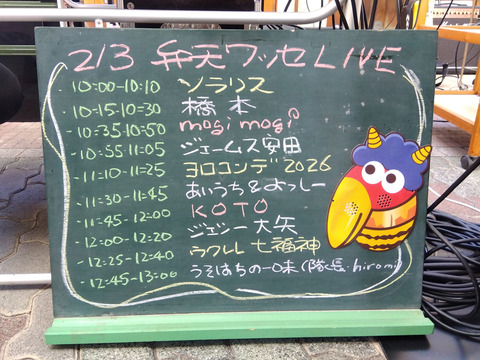 2/3 弁天ワッセLIVE
10:00-10:10 ソラリス
10:15-10:30 橋本
10:35-10:50 mogi mogi
10:55-11:05 ジェームス安田
11:10-11:25 ヨロコンデ2026
11:30-11:45 あいうち&よっしー
11:45-12:00 KOTO
12:00-12:20 ジェジー大矢
12:25-12:40 ウクレレ七福神
12:45-13:00 うろはちの一味(隊長・hiromi)